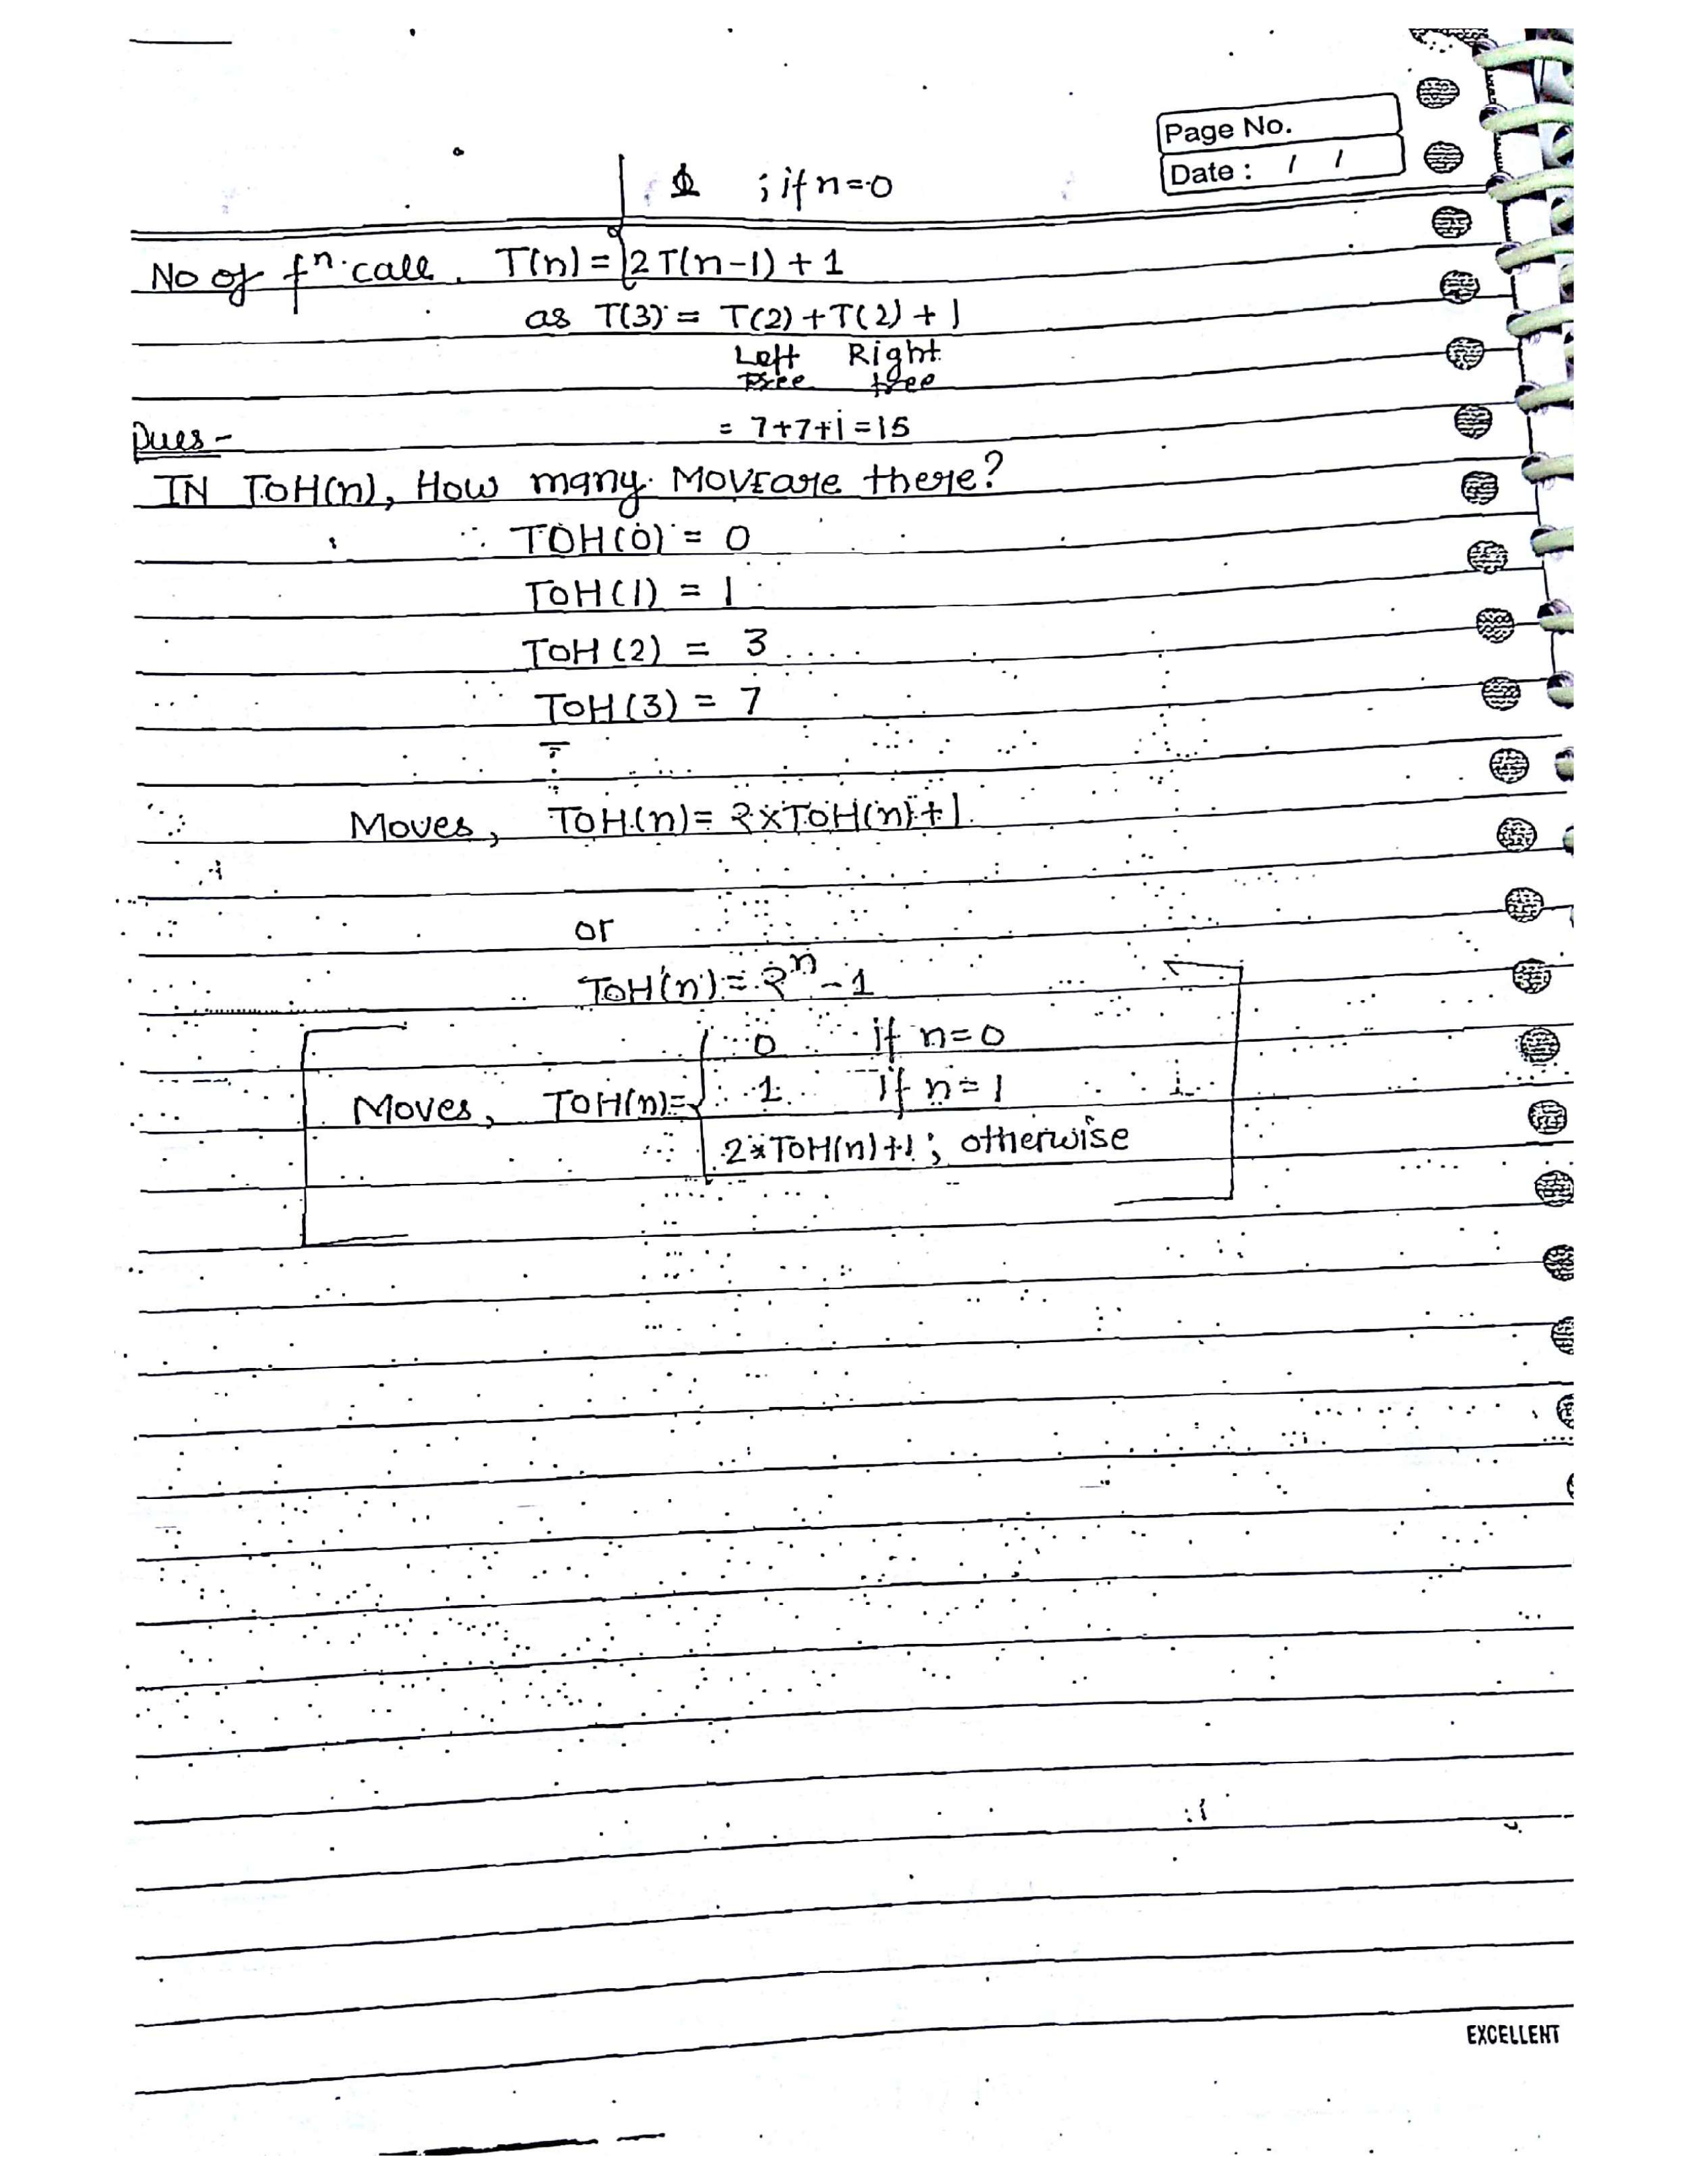 Page No.
Date : / /
1 ; if n=0
No of fⁿ call. T(n) = 2T(n-1) + 1
as T(3) = T(2) + T(2) + 1
Left Right
Tree tree
= 7+7+1 = 15
Ques -
IN TOH(n), How many Move are there?
TOH(0) = 0
TOH(1) = 1
TOH(2) = 3 ....
TOH(3) = 7
Moves, TOH(n) = 2×TOH(n)+1
or
TOH(n) = 2ⁿ - 1
0 if n=0
Moves, TOH(n) = 1 if n=1
2*TOH(n)+1 ; otherwise
EXCELLENT